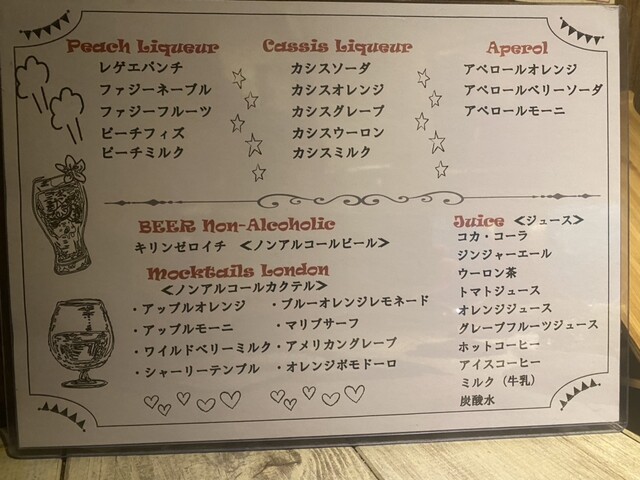 Peach Liqueur
レゲエパンチ
ファジーネーブル
ファジーフルーツ
ピーチフィズ
ピーチミルク
Cassis Liqueur
カシスソーダ
カシスオレンジ
カシスグレープ
カシスウーロン
カシスミルク
Aperol
アペロールオレンジ
アペロールベリーソーダ
アペロールモーニ
BEER Non-Alcoholic
キリンゼロイチ <ノンアルコールビール>
Mocktails London
<ノンアルコールカクテル>
・アップルオレンジ
・アップルモーニ
・ワイルドベリーミルク
・シャーリーテンプル
・ブルーオレンジレモネード
・マリブサーフ
・アメリカングレープ
・オレンジポモドーロ
Juice <ジュース>
コカ・コーラ
ジンジャーエール
ウーロン茶
トマトジュース
オレンジジュース
グレープフルーツジュース
ホットコーヒー
アイスコーヒー
ミルク(牛乳)
炭酸水